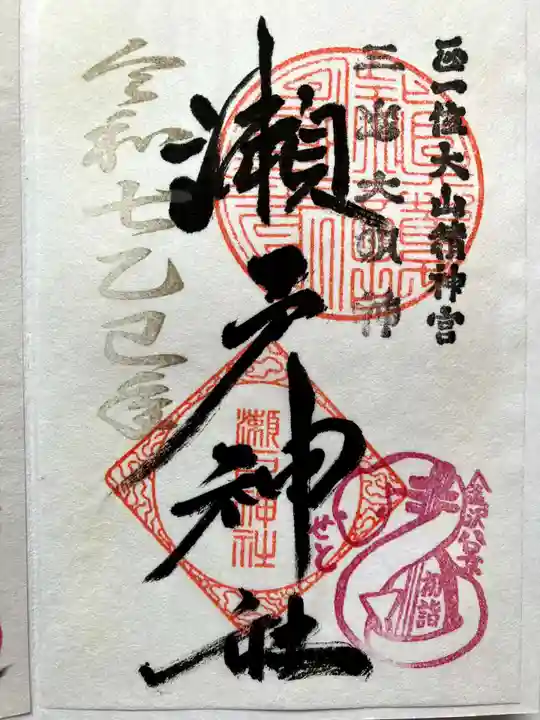 正一位大山積神宮
三島大明神
瀬戸神社
令和七乙巳年
瀬戸神社
金沢八景
せと
初詣